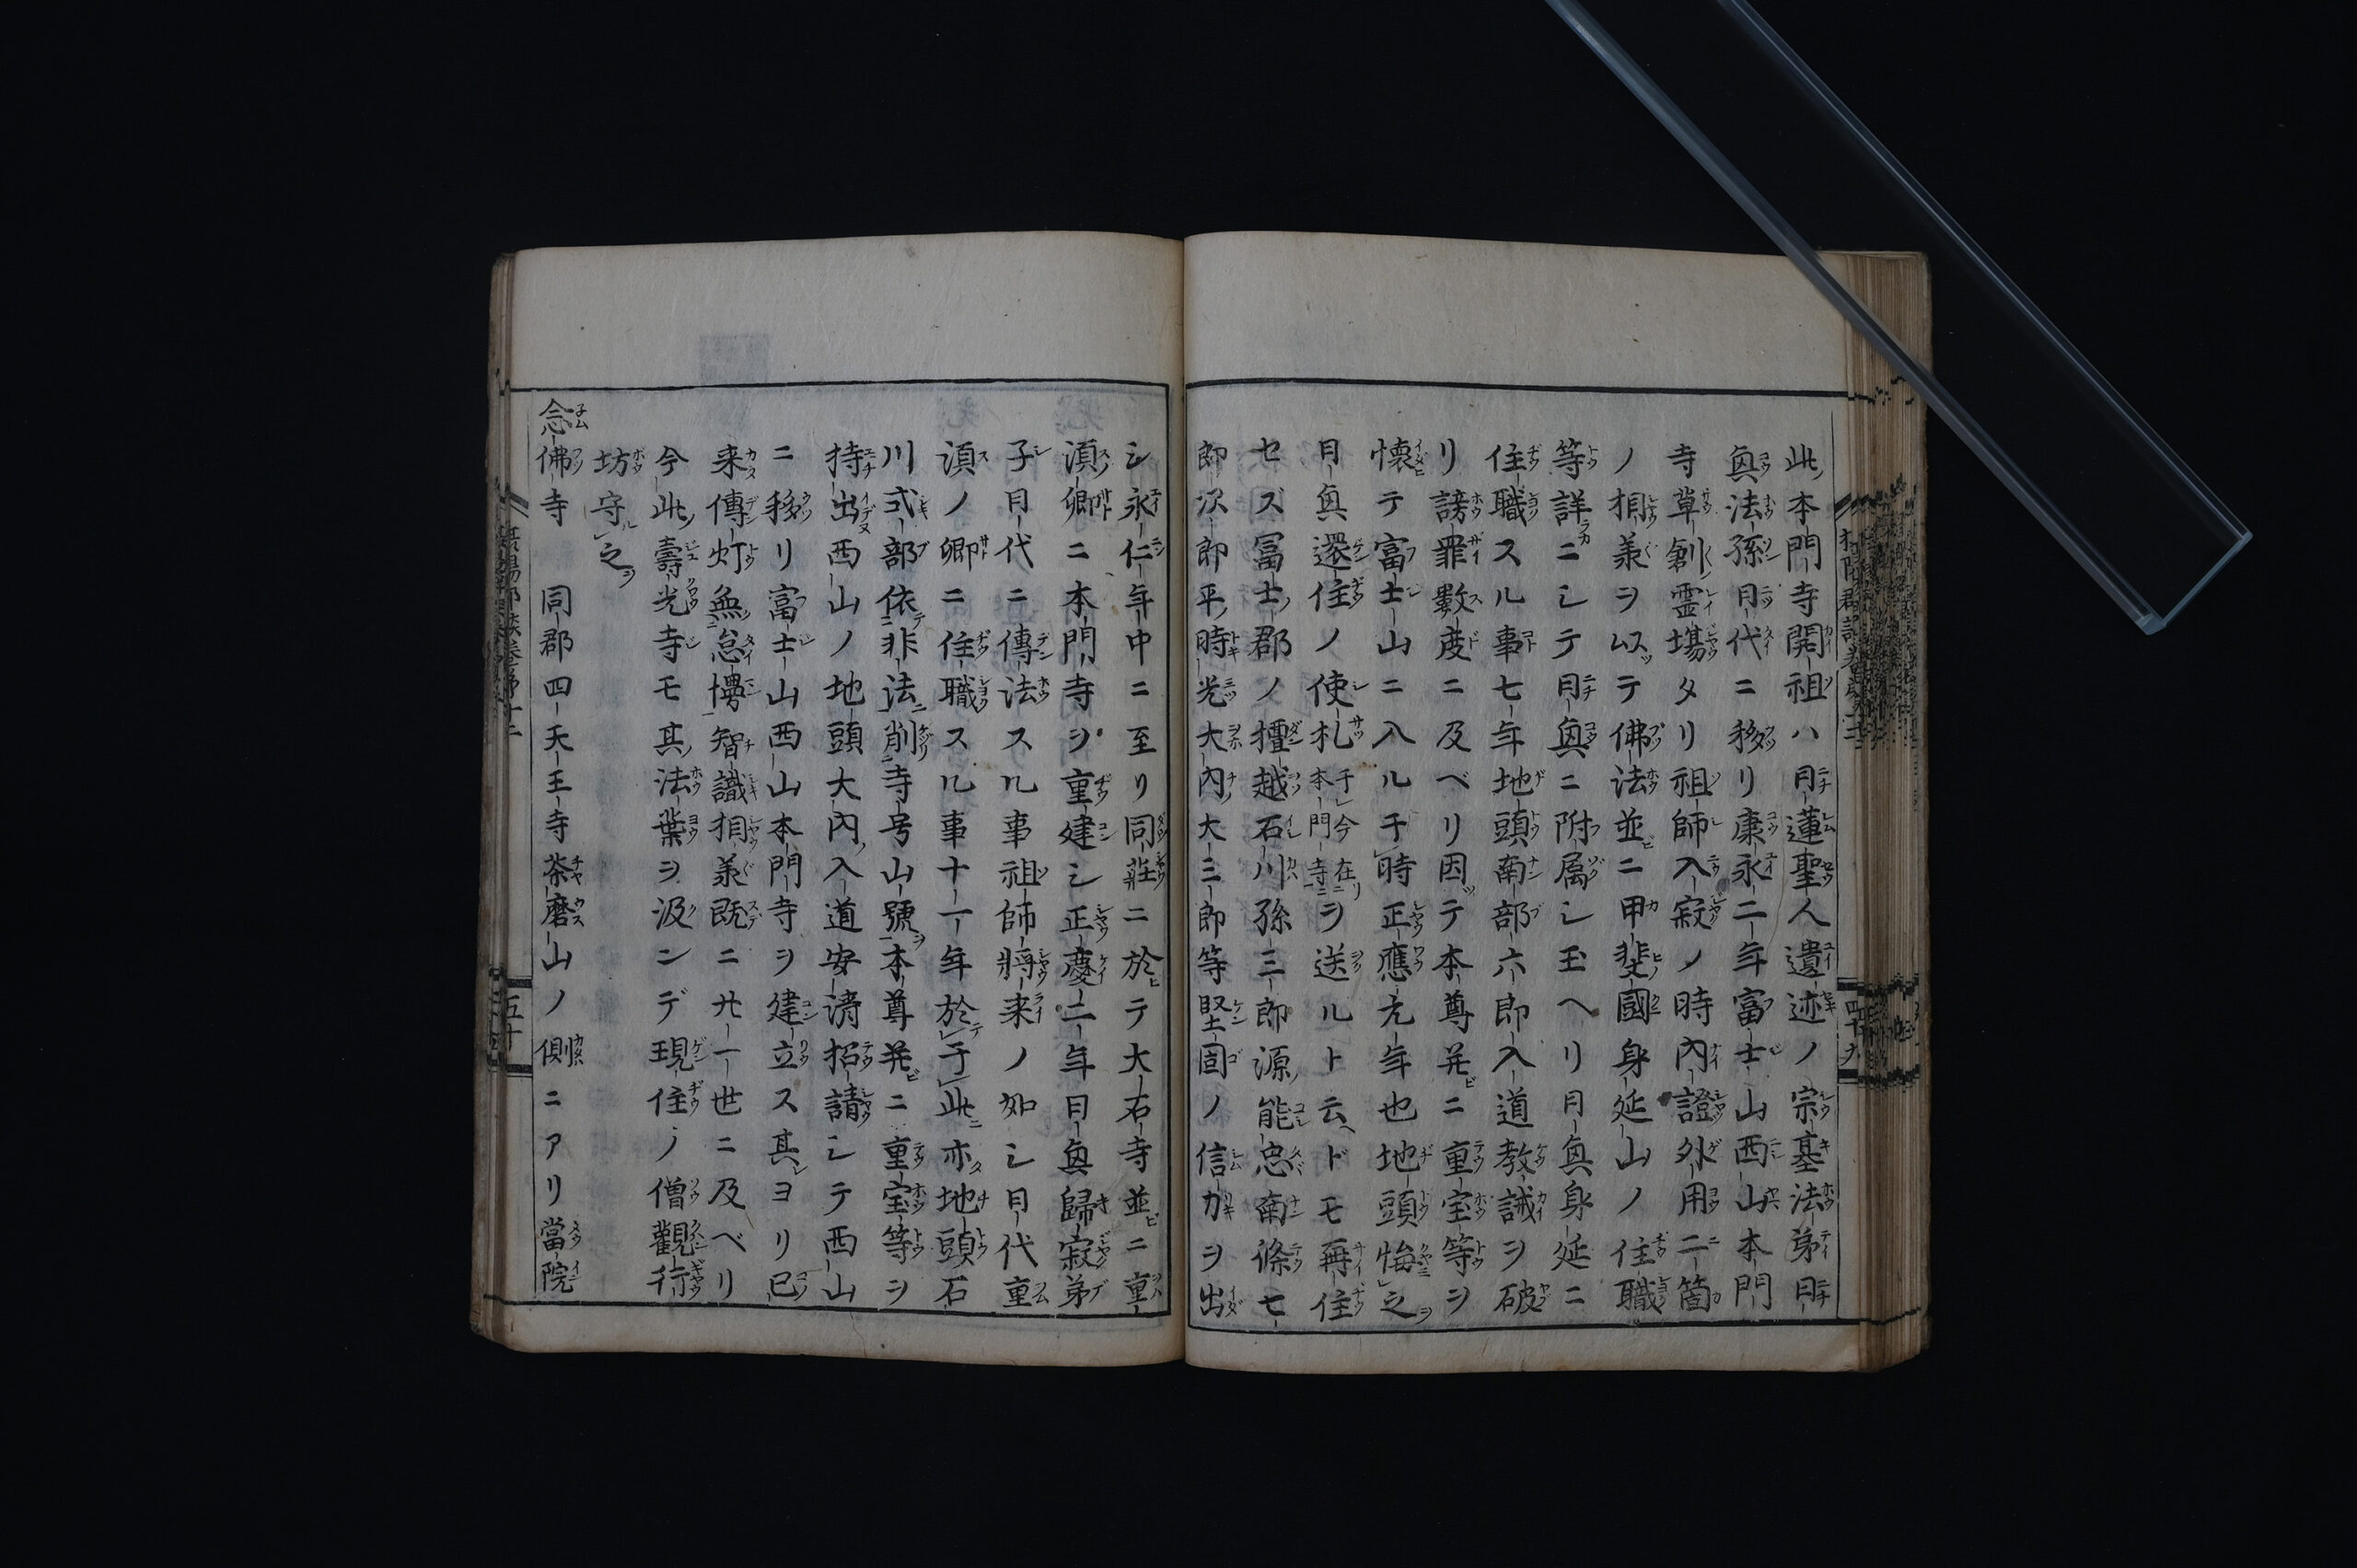 此本門寺開祖ハ日蓮聖人遺迹ノ宗基法弟日
興法孫日代ニ移リ康永二年富士山西山本門
寺草創霊塲タリ祖師入寂ノ時内證外用二箇
ノ相義ヲ以テ佛法並ニ甲斐國身延山ノ住職
等詳ニシテ日興ニ附属シ玉ヘリ日興身延ニ
住職スル事七年地頭南部六郎入道教誡ヲ破
リ謗罪數度ニ及ベリ因テ本尊并ニ重宝等ヲ
懐テ富士山ニ入ル于時正應元年也地頭悔之
日興還住ノ使札于今在本門寺ニヲ送ルト云ドモ再住
セズ冨士郡ノ檀越石川孫三郎源能忠南條七
郎次郎平時光大内大三郎等堅固ノ信力ヲ出
シ永仁年中ニ至リ同莊ニ於テ大石寺並ニ重
湏卿ニ本門寺ヲ重建シ正慶二年日興歸寂弟
子日代ニ傳法スル事祖師將来ノ如シ日代重
湏ノ卿ニ住職スル事十一年於于此亦地頭石
川式部依非法削寺号山號本尊并ニ重宝等ヲ
持出西山ノ地頭大内入道安淸招請シテ西山
ニ移リ富士山西山本門寺ヲ建立ス其ヨリ已
来傳灯無怠慢智識相義既ニ廿一世ニ及ベリ
今此壽光寺モ其法葉ヲ汲ンデ現住ノ僧觀行
坊守之
念佛寺 同郡四天王寺茶磨山ノ側ニアリ當院
五十
四十九